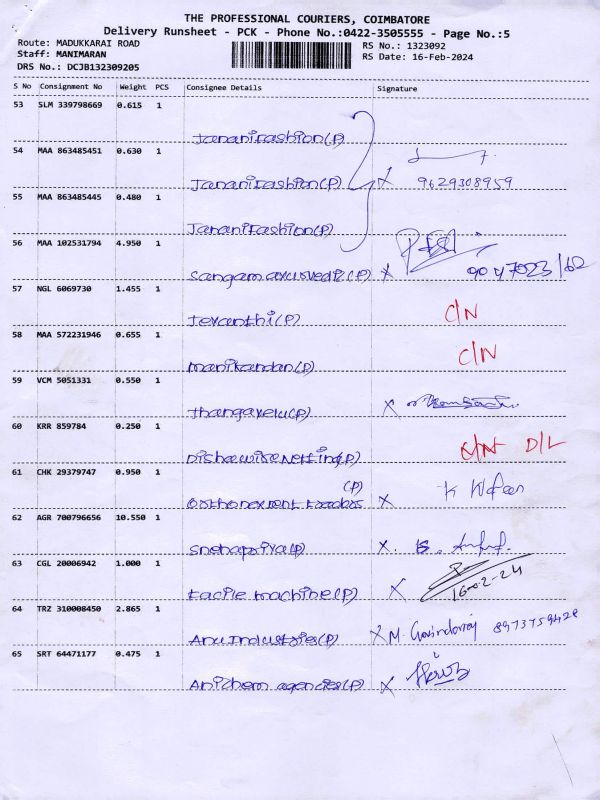 THE PROFESSIONAL COURIERS, COIMBATORE
Delivery Runsheet - PCK - Phone No.:0422-3505555 - Page No.:5
Route: MADUKKARAI ROAD RS No.: 1323092
Staff: MANIMARAN RS Date: 16-Feb-2024
DRS No.: DCJB132309205
S No Consignment No Weight PCS Consignee Details Signature
53 SLM 339798669 0.615 1
JananiFashion(P)
54 MAA 863485451 0.630 1
JananiFashion(P) X 9629308959
55 MAA 863485445 0.480 1
JananiFashion(P)
56 MAA 102531794 4.950 1
Sangam (P) X
57 NGL 6069730 1.455 1
Jeyanthi(P) C/N
58 MAA 572231946 0.655 1
manikandan(P) C/N
59 VCM 5051331 0.550 1
Thangavelu(P) X
60 KRR 859784 0.250 1
(P) D/L
61 CHK 29379747 0.950 1
(P)
X K
62 AGR 700796656 10.550 1
Snehapriya(P) X.
63 CGL 20006942 1.000 1
machine(P) X 16-02-24
64 TRZ 310008450 2.865 1
Anu Industries(P) X M. Govindaraj 8973759428
65 SRT 64471177 0.475 1
Anichem agencies(P) X